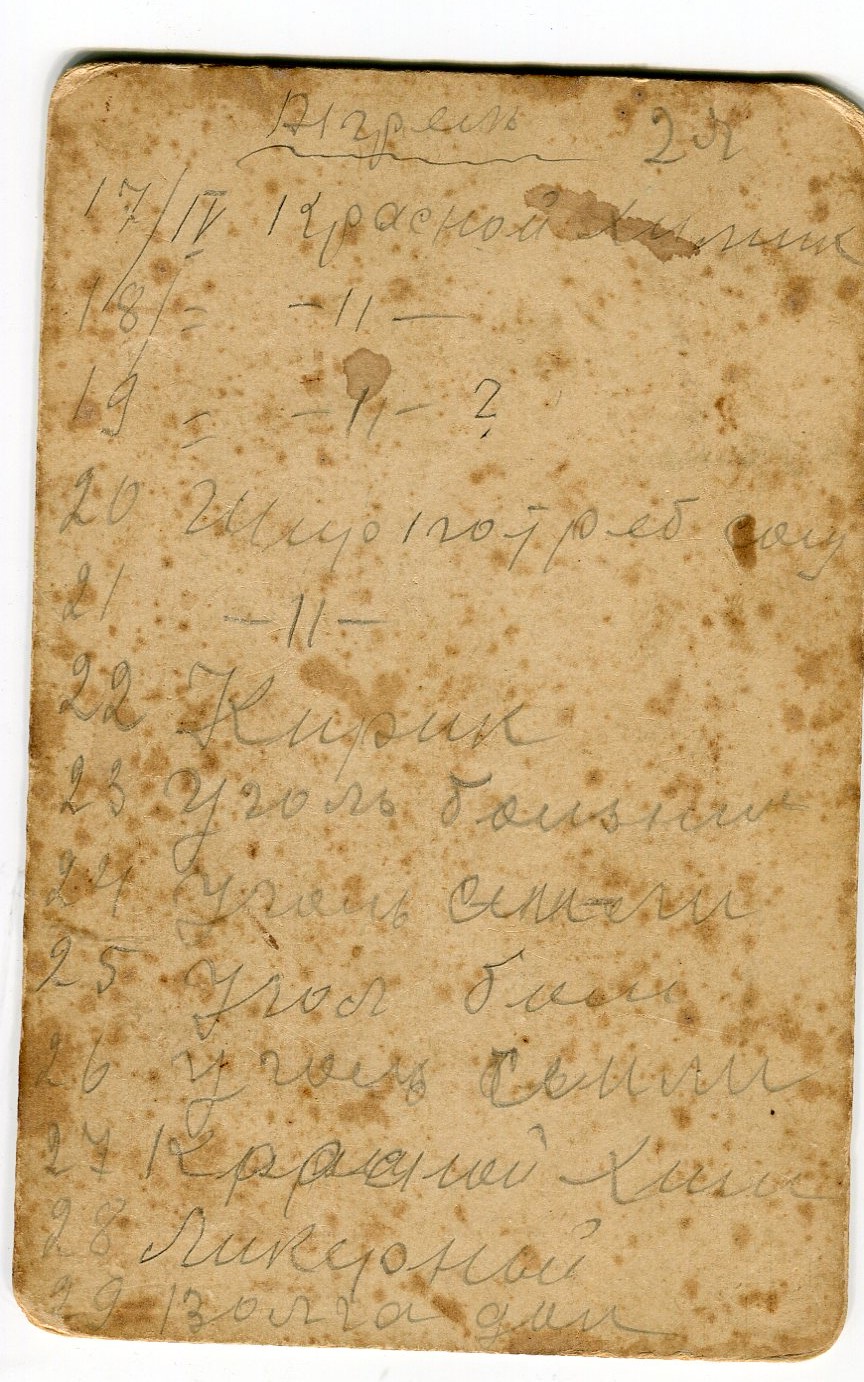 Апрель 2й
17/IV Красной Химик
18/= -11-
19 = -11- ?
20 Ширпотреб
21 -11-
22 Кирик
23 Уголь
24 Уголь
25 Угол
26 Уголь
27 Красной Хим
28 Ликерный
29 Волга дон